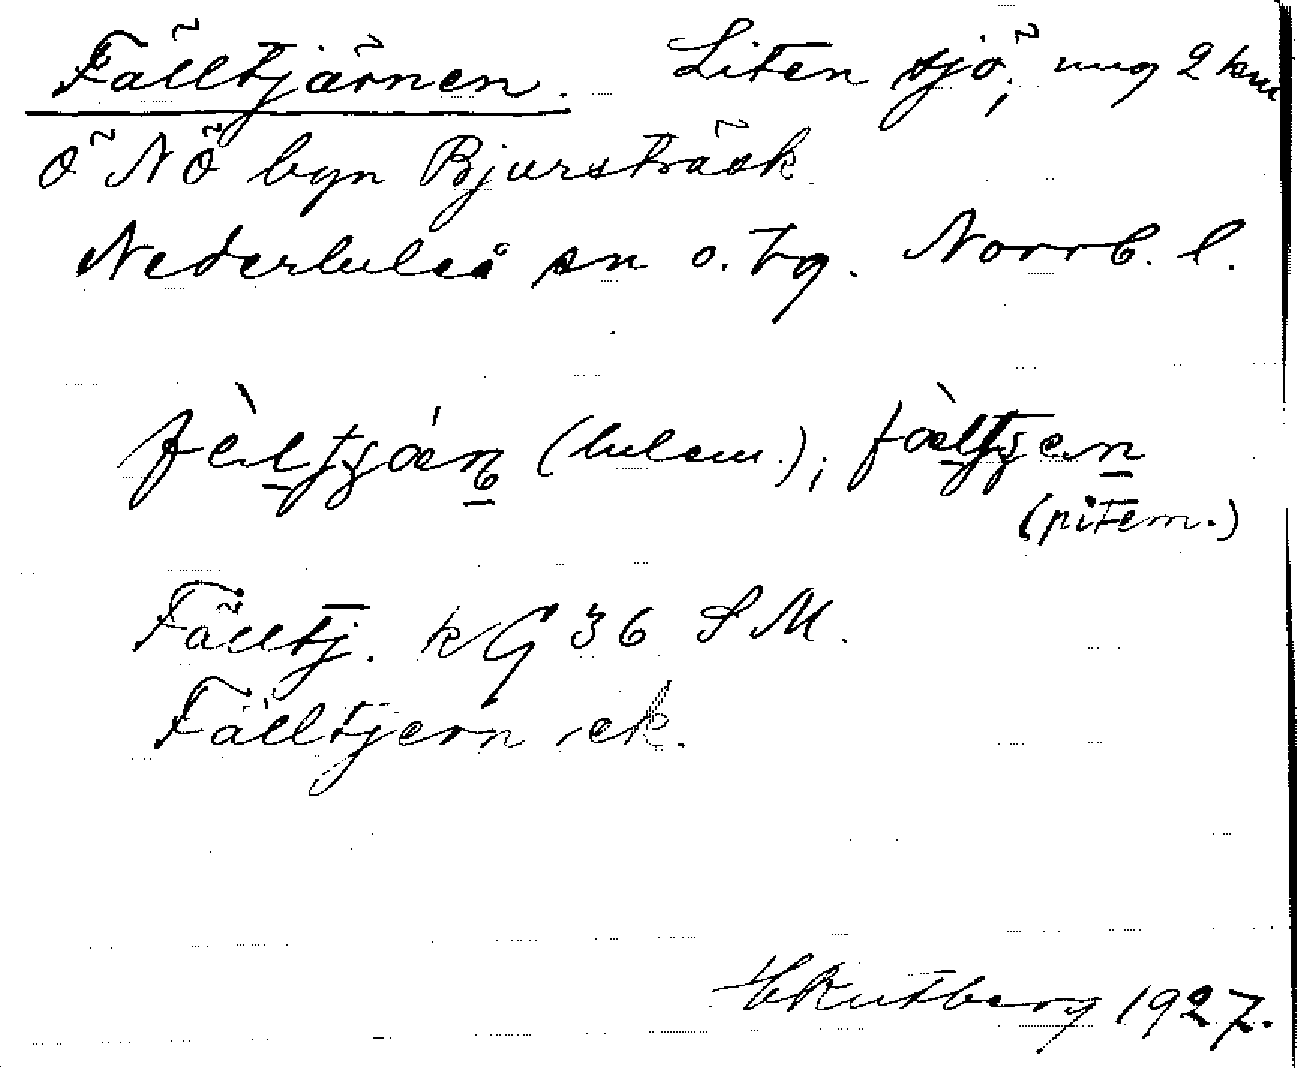 Fälltjärnen. Liten sjö, ung 2 km
Ö NÖ byn Bjursträsk
Nederluleå sn o. tg. Norrb. l.
(lulem.);
(pitem.)
Fälltj. kG 36 S M.
Fälltjern ek.
HRutberg 1927.